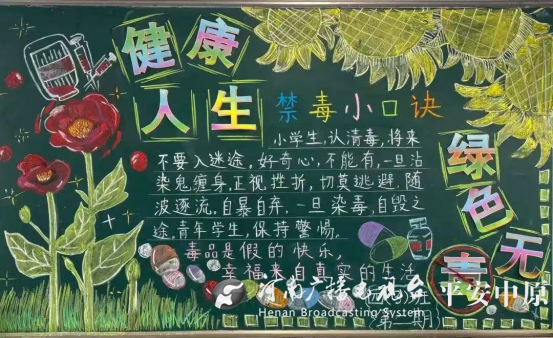 健康
人生
禁毒小口诀
小学生,认清毒,将来
不要入迷途,好奇心,不能有,一旦沾
染鬼缠身,正视挫折,切莫逃避,随
波逐流,自暴自弃,一旦染毒,自毁之
途,青年学生,保持警惕。
毒品是假的快乐,
幸福来自真实的生活
绿色无
毒
班
(第一期)
河南广播电视台
Henan Broadcasting System
平安中原